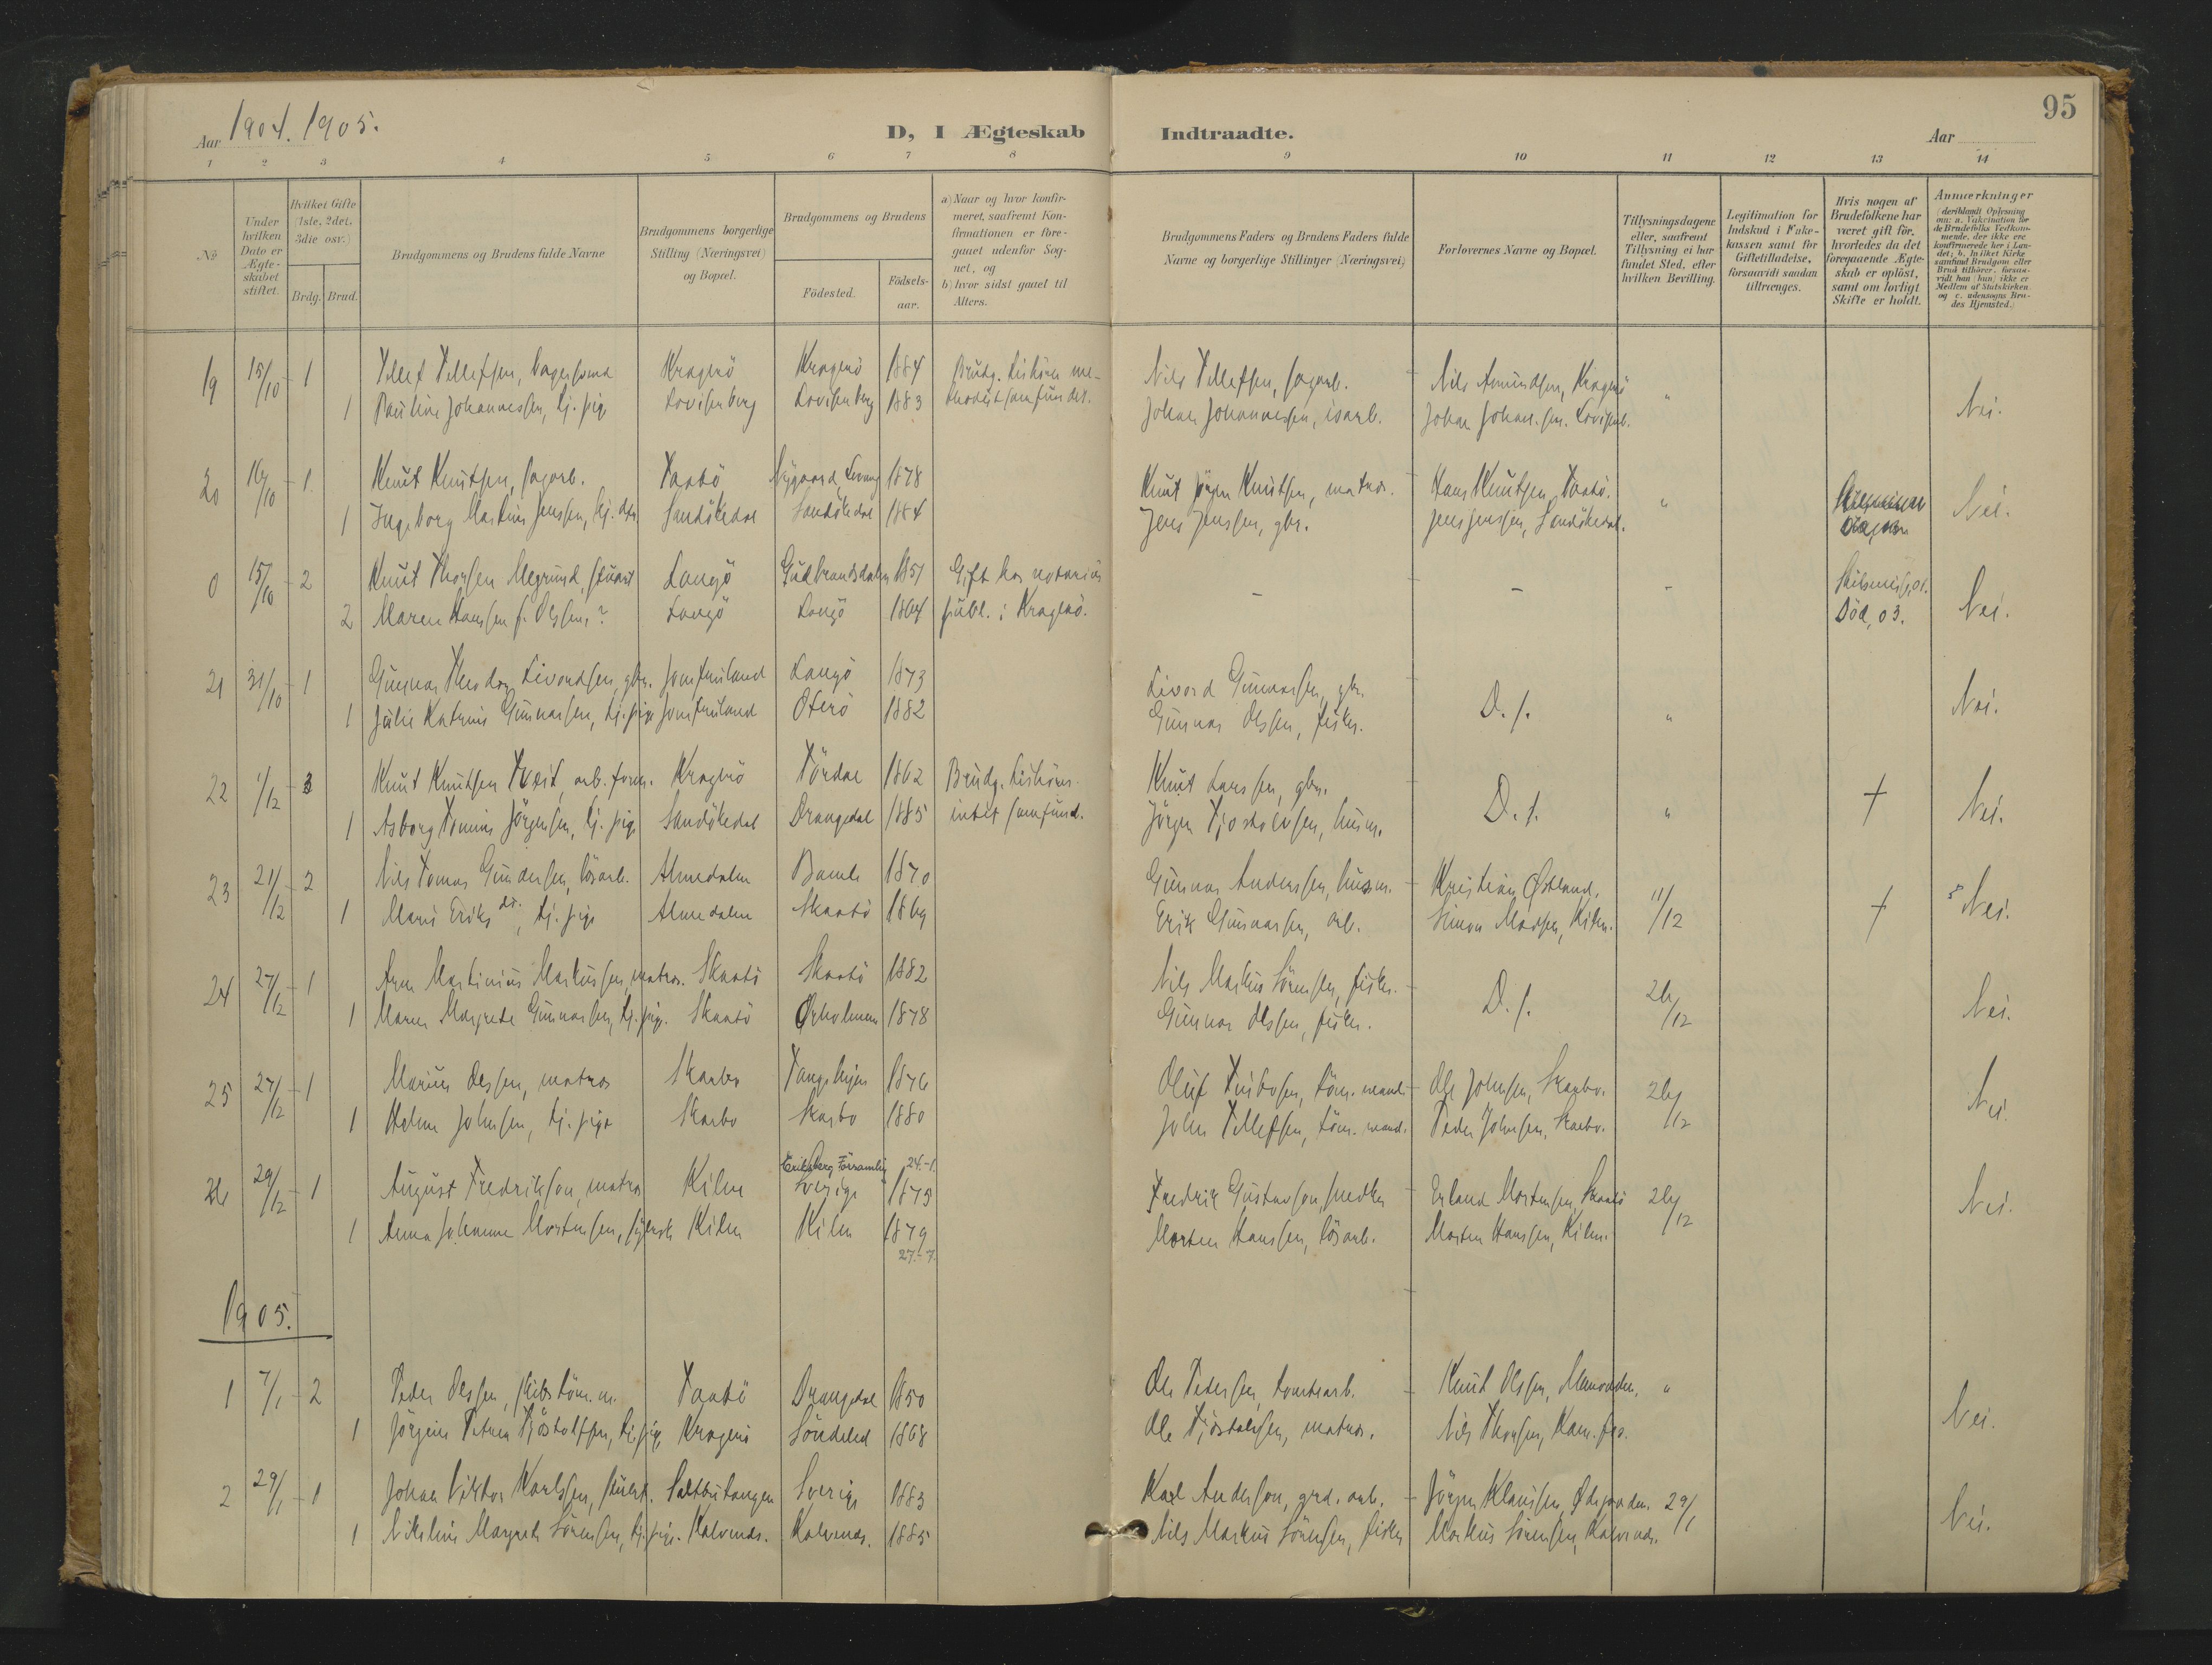 95
Aar 1904. 1905.
D, I Ægteskab Indtraadte.
Aar
1 2 3 4 5 6 7 8 9 10 11 12 13 14
No
Under hvilken Dato er Ægteskabet stiftet.
Hvilket Gifte (1ste, 2det, 3die osv.)
Brdg. Brud.
Brudgommens og Brudens fulde Navne
Brudgommens borgerlige Stilling (Næringsvei) og Bopæl.
Brudgommens og Brudens
Födested.
Födsels-aar.
a) Naar og hvor konfirmeret, saafremt Konfirmationen er foregaaet udenfor Sognet, og
b) hvor sidst gaaet til Alters.
Brudgommens Faders og Brudens Faders fulde Navne og borgerlige Stillinger (Næringsvei)
Forlovernes Navne og Bopæl.
Tillysningsdagene eller, saafremt Tillysning ei har fundet Sted, efter hvilken Bevilling.
Legitimation for Indskud i Enkekassen samt for Giftetilladelse, forsaavidt saadan tiltrænges.
Hvis nogen af Brudefolkene har været gift för, hvorledes da det foregaaende Ægteskab er oplöst, samt om lovligt Skifte er holdt.
Anmærkninger (deriblandt Oplysning om: a. Vakcination for de Brudefolks Vedkommende, der ikke ere konfirmerede her i Landet; b. hvilket Kirkesamfund Brudgom eller Brud tilhörer, forsaavidt han (hun) ikke er Medlem af Statskirken og c. udensogns Brudes Hjemsted.)
19 15/10 - 1 Tellef Tellefsen, bagersvend Kragerö Kragerö 1884 Brudg. tilhörer me- Nils Tellefsen, sagarb. - Nils Amundsen, Kragerö "
1 Pauline Johannessen, tj. pige Lovisenberg Lovisenberg 1883 thodistsamfundet. Johan Johannessen, isarb. Johan Johannesen. Lovisenb. Nei.
20 16/10 - 1 Knut Knutsen, sagarb. Taatö Nygaard, Levang 1878 Knut Jörgen Knutsen, matros. - Hans Knutsen, Taatö. "
1 Ingeborg Martine Jenssen, gj. dtr. Sandökedal Sandökedal 1884 Jens Jenssen, gbr. Jens Jenssen, Sandökedal. Nei.
0 15/10 - 2 Knut Thorsen Megrund, stuert Langö Gudbrandsdalen 1851 Gift hos notarius - - - Skilsmisse, 01.
2 Maren Hanssen f. Olssen? Langö Langö 1864 publ. i Kragerö. Död, 03. Nei.
21 31/10 - 1 Gunnar Theodor Livordsen, gbr. Jomfruland Langö 1873 Livord Gunnarsen, gbr. D. s. "
1 Julie Katrine Gunnarsen, tj. pige Jomfruland Oterö 1882 Gunnar Olssen, fisker. Nei.
22 1/12 - 3 Knut Knutsen Tveit, arb. form. Kragerö Tördal 1862 Brudg. tilhörer Knut Larssen, gbr. D. s. " † Nei.
1 Asborg Tomine Jörgensen, tj. pige Sandökedal Drangedal 1885 intet samfund. Jörgen Tjostolvsen, husm.
23 21/12 - 2 Nils Tomas Gundersen, lösarb. Almedalen Bamle 1870 Gunnar Anderssen, husm. - Kristian Østlund, 11/12 † Nei.
1 Marie Eriksdtr., tj. pige Almedalen Skaatö 1869 Erik Gunnarsen, arb. Simon Madsen, Kilen.
24 27/12 - 1 Arne Martinius Markussen, matros. Skaatö Skaatö 1882 Nils Markus Sörensen, fisker. - D. s. 26/12
1 Maren Margrete Gunnarsen, tj. pige. Skaatö Ørholmen 1878 Gunnar Olssen, fisker. Nei.
25 27/12 - 1 Marius Olssen, matros Skarbo 1876 - Ole Johnsen, Skarbo. 26/12
1 Helene Johnsen, tj. pige Skarbo Skarbo 1880 John Tellefsen, töm. mand. Peder Johnsen, Skarbo. Nei.
26 29/12 - 1 August Fredrikson, matros Kilen Eriksberg Församling Sverige 24.-1. 1875 Fredrik Gustavson, smedker - Erland Mortensen, Skaatö 26/12
1 Anna Johanne Mortensen, syersk Kilen Kilen 1879 27.-7. Morten Hanssen, lösarb. Morten Hanssen, Kilen. Nei.
1905.
1 7/1 - 2 Peder Olssen, skibstöm. m. Taatö Drangedal 1850 Ole Pedersen, tomtearb. - Knut Olssen, "
1 Jörgine Petrea Tjöstolfsen, tj. pige Kragerö Söndeled 1868 Ole Tjöstolvsen, matros. Nils Thorsen, Nei.
2 29/1 - 1 Johan Viktor Karlssen, stuert. Saltbutangen Sverige 1883 Karl Anderson, grd. arb. - Jörgen Klaussen, Ødegaarden. 29/1
1 Nikoline Margrete Sörensen, tj. pige. Kalvsnds. Kalvsnds. 1885 Nils Markus Sörensen, fisker Markus Sörensen, Kalvsnds. Nei.